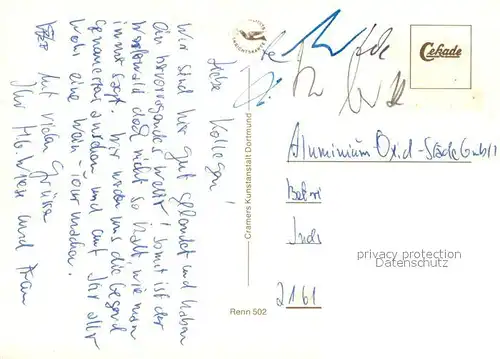 Liebe Kollegen!
Wir sind hier gut gelandet und haben
ein hervorragendes Wetter! Somit ist der
Westerwald doch nicht so kalt, wie man
immer sagt. Wir werden uns die Gegend
genauestens ansehen und auf Ihr aller
Wohl eine Wein-Tour machen.
Mit vielen Grüssen
Ihr und Frau
Cramers Kunstanstalt Dortmund
Renn 502
Cekade
Aluminium Oxid - Stade GmbH
2161
privacy protection
Datenschutz